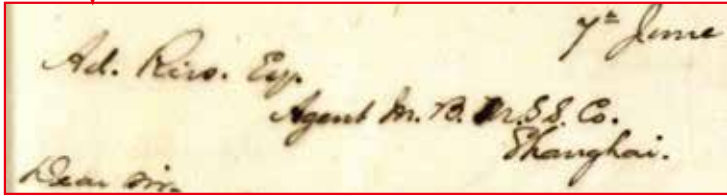 7th June
Ad. Rivo. Esq.
Agent M. B. M. S. S. Co.
Shanghai.
Dear Sir,